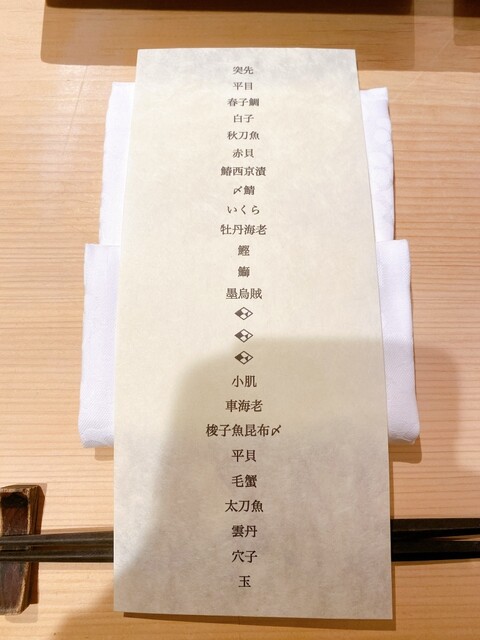 突先
平目
春子鯛
白子
秋刀魚
赤貝
鰆西京漬
〆鯖
いくら
牡丹海老
鰹
鰤
墨烏賊
小肌
車海老
梭子魚昆布〆
平貝
毛蟹
太刀魚
雲丹
穴子
玉